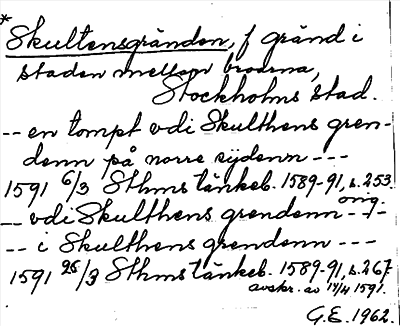 *
Skultensgränden, f gränd i
staden mellan broarna,
Stockholms stad.
-- en tompt vdi Skulthens gren-
denn på norre sijdenn ---
1591 6/3 Sthms tänkeb. 1589-91, s. 253
orig.
-- vdi Skulthens grendenn ---
-- i Skulthens grendenn ---
1591 26/3 Sthms tänkeb. 1589-91, s. 267.
avskr. av 17/4 1591.
G.E. 1962.